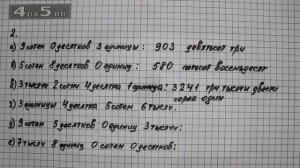 4 ДА 5.RU
2.
а) 9 сотен 0 десятков 3 единицы : 903 девятьсот три
б) 5 сотен 8 десятков 0 единиц : 580 пятьсот восемьдесят
в) 3 тысячи 2 сотни 4 десятка 1 единица : 3241 три тысячи двести
сорок один
г) 3 единицы 4 десятка 5 сотен 6 тысяч.
д) 9 сотен 5 десятков 0 единиц 3 тысячи;
е) 7 тысяч 8 единиц 0 сотен 0 десятков;